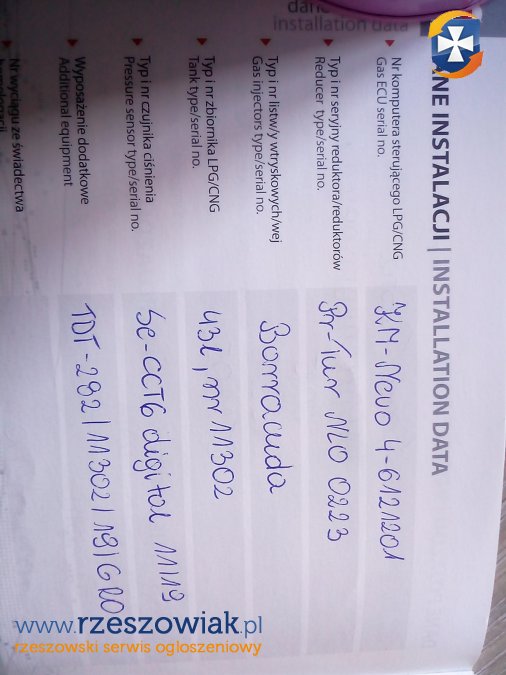 dane
installation data
ANE INSTALACJI | INSTALLATION DATA
Nr komputera sterującego LPG/CNG
Gas ECU serial no.
KM-Nevo 4-6121201
Typ i nr seryjny reduktora/reduktorów
Reducer type/serial no.
Pr-Tur NLO 0223
Typ i nr listw/y wtryskowych/wej
Gas injectors type/serial no.
Barracuda
Typ i nr zbiornika LPG/CNG
Tank type/serial no.
43l, nr 11302
Typ i nr czujnika ciśnienia
Pressure sensor type/serial no.
Se-CCT6 digital 11/19
Wyposażenie dodatkowe
Additional equipment
TDT-292/11302/19/GRO
Nr wyciągu ze świadectwa
homologacji
www.rzeszowiak.pl
rzeszowski serwis ogłoszeniowy